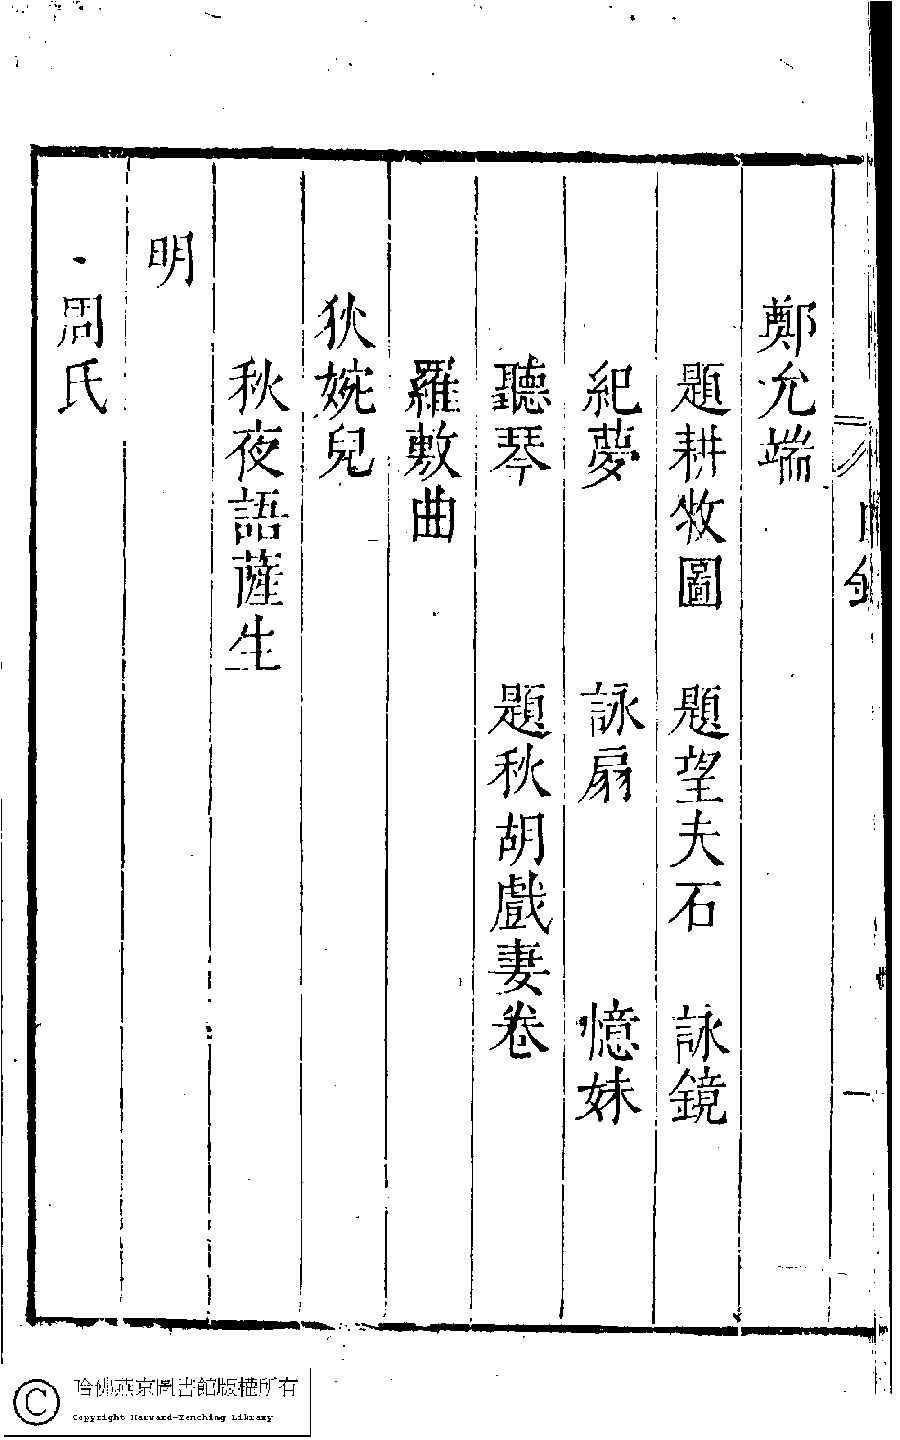 目錄
一
鄭允端
題耕牧圖 題望夫石 詠鏡
紀夢 詠扇 憶妹
聽琴 題秋胡戲妻卷
羅敷曲
狄婉兒
秋夜語薩生
明
周氏
哈佛燕京圖書館版權所有
Copyright Harvard-Yenching Library